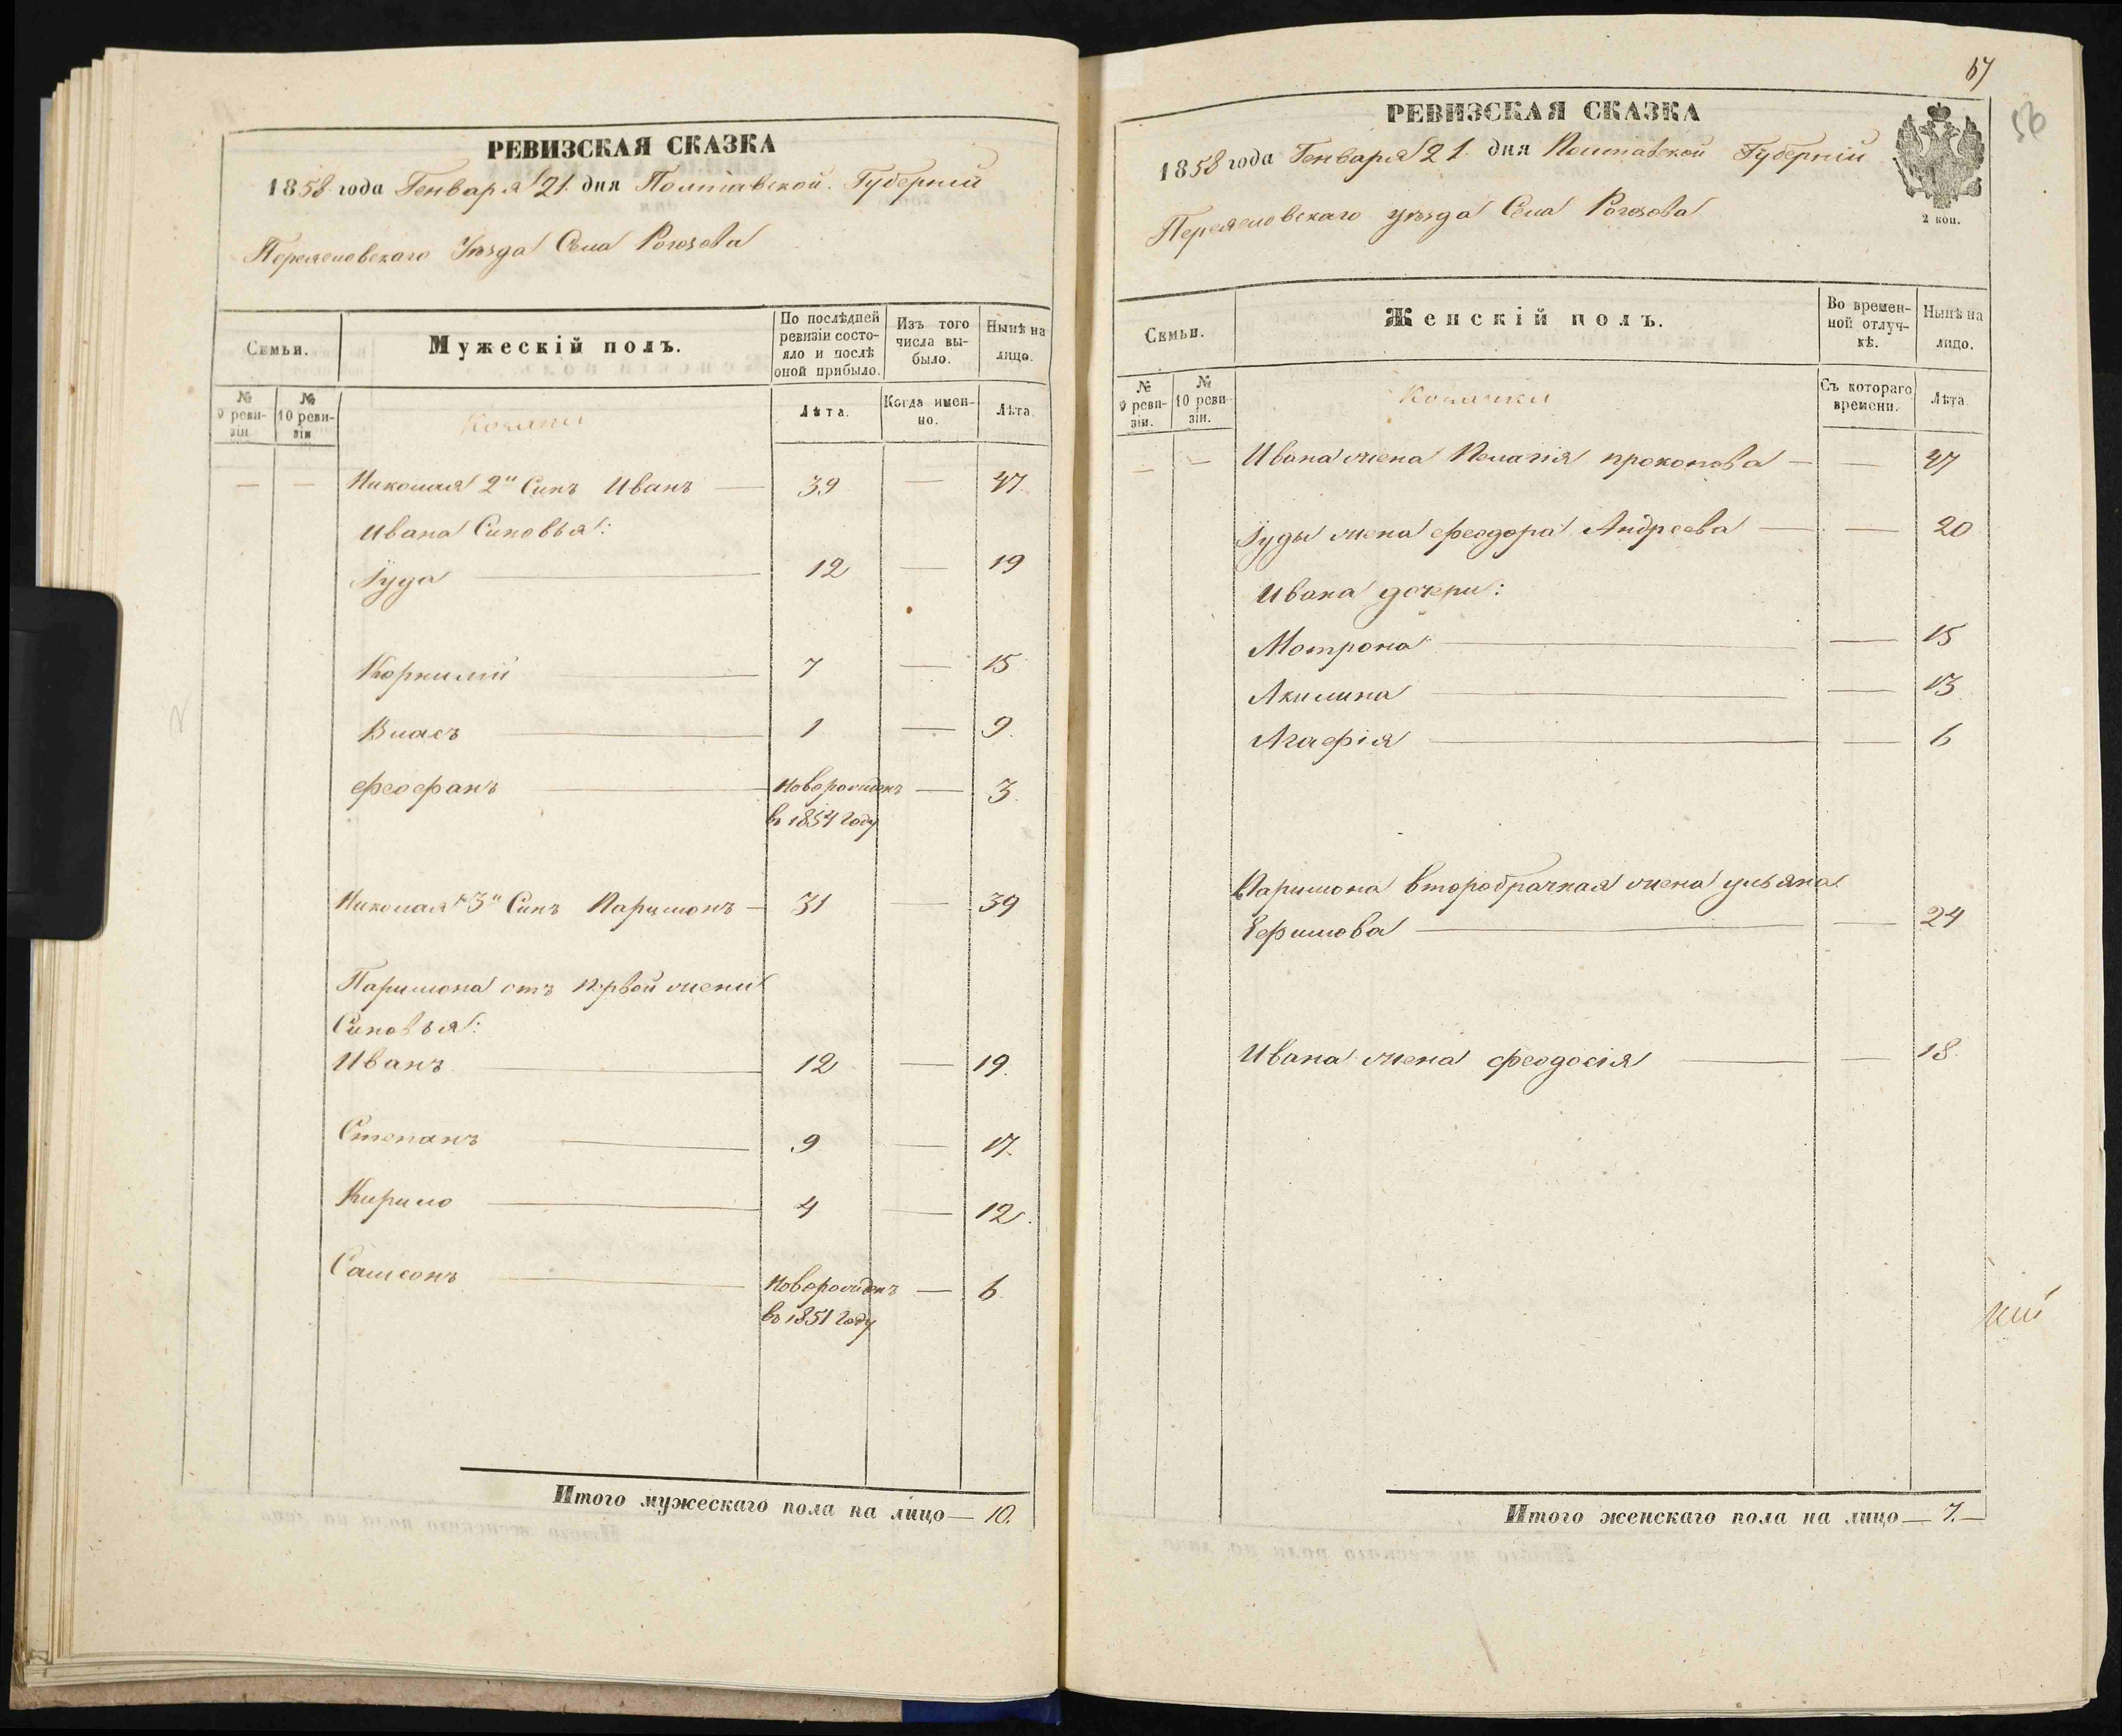 РЕВИЗСКАЯ СКАЗКА
1858 года Генваря 21. дня Полтавской Губерніи
Переяславскаго Уѣзда Села Рогозова
Семьи.
Мужескій полъ.
По послѣдней ревизіи состояло и послѣ оной прибыло.
Изъ того числа выбыло.
Нынѣ на лицо.
№ 9 ревизіи.
№ 10 ревизіи
Козаки
Лѣта.
Когда именно.
Лѣта.
— — Николая 2й Синъ Иванъ — 39 — 47.
Ивана Синовья:
Іуда — 12 — 19
Корнилій — 7 — 15
Власъ — 1 — 9.
Феофанъ — Новорожденъ — 3.
въ 1854 Году
Николая 3й Синъ Паримонъ — 31 — 39
Паримона отъ первой жени
Синовья:
Иванъ — 12 — 19.
Степанъ — 9 — 17.
Кирило — 4 — 12.
Самсонъ — Новорожденъ — 6
въ 1851 Году
Итого мужескаго пола на лицо — 10.
57
56
РЕВИЗСКАЯ СКАЗКА
1858 года Генваря 21. дня Полтавской Губерніи
Переяславскаго уѣзда Села Рогозова
2 коп.
Семьи.
Женскій полъ.
Во временной отлучкѣ.
Нынѣ на лицо.
№ 9 ревизіи.
№ 10 ревизіи.
Козачки
Съ котораго времени.
Лѣта
— — Ивана жена Пелагія прокопова — — 47
Іуды жена феодора Андреева — — 20
Ивана дочери:
Мотрона — — 15
Акилина — — 13
Агафія — — 6
Паримона второбрачная жена ульяна
Ефимова — — 24
Ивана жена феодосія — — 18.
Итого женскаго пола на лицо — 7. —